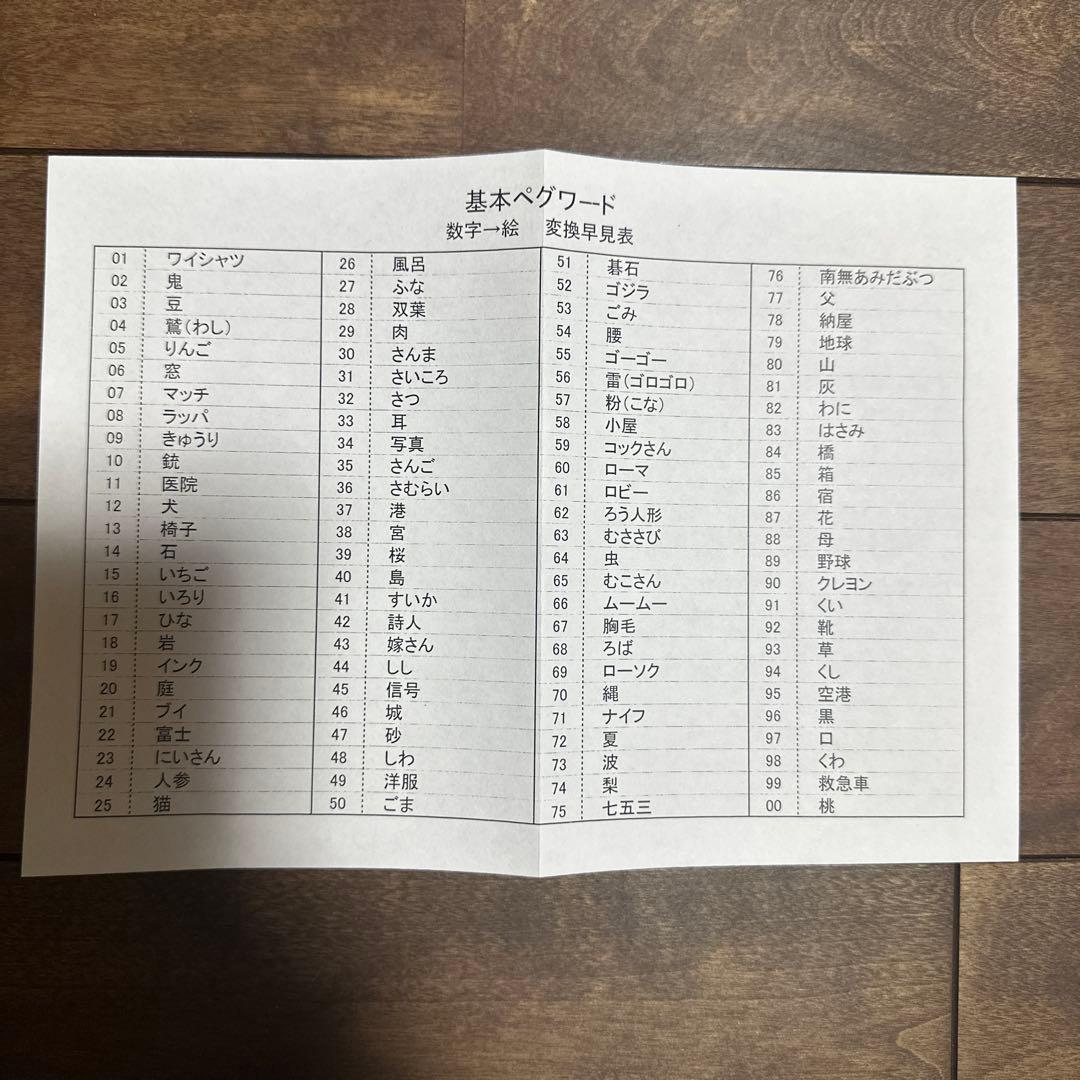 基本ペグワード
数字→絵　変換早見表
01 ワイシャツ
02 鬼
03 豆
04 鷲(わし)
05 りんご
06 窓
07 マッチ
08 ラッパ
09 きゅうり
10 銃
11 医院
12 犬
13 椅子
14 石
15 いちご
16 いろり
17 ひな
18 岩
19 インク
20 庭
21 ブイ
22 富士
23 にいさん
24 人参
25 猫
26 風呂
27 ふな
28 双葉
29 肉
30 さんま
31 さいころ
32 さつ
33 耳
34 写真
35 さんご
36 さむらい
37 港
38 宮
39 桜
40 島
41 すいか
42 詩人
43 嫁さん
44 しし
45 信号
46 城
47 砂
48 しわ
49 洋服
50 ごま
51 碁石
52 ゴジラ
53 ごみ
54 腰
55 ゴーゴー
56 雷(ゴロゴロ)
57 粉(こな)
58 小屋
59 コックさん
60 ローマ
61 ロビー
62 ろう人形
63 むささび
64 虫
65 むこさん
66 ムームー
67 胸毛
68 ろば
69 ローソク
70 縄
71 ナイフ
72 夏
73 波
74 梨
75 七五三
76 南無あみだぶつ
77 父
78 納屋
79 地球
80 山
81 灰
82 わに
83 はさみ
84 橋
85 箱
86 宿
87 花
88 母
89 野球
90 クレヨン
91 くい
92 靴
93 草
94 くし
95 空港
96 黒
97 口
98 くわ
99 救急車
00 桃